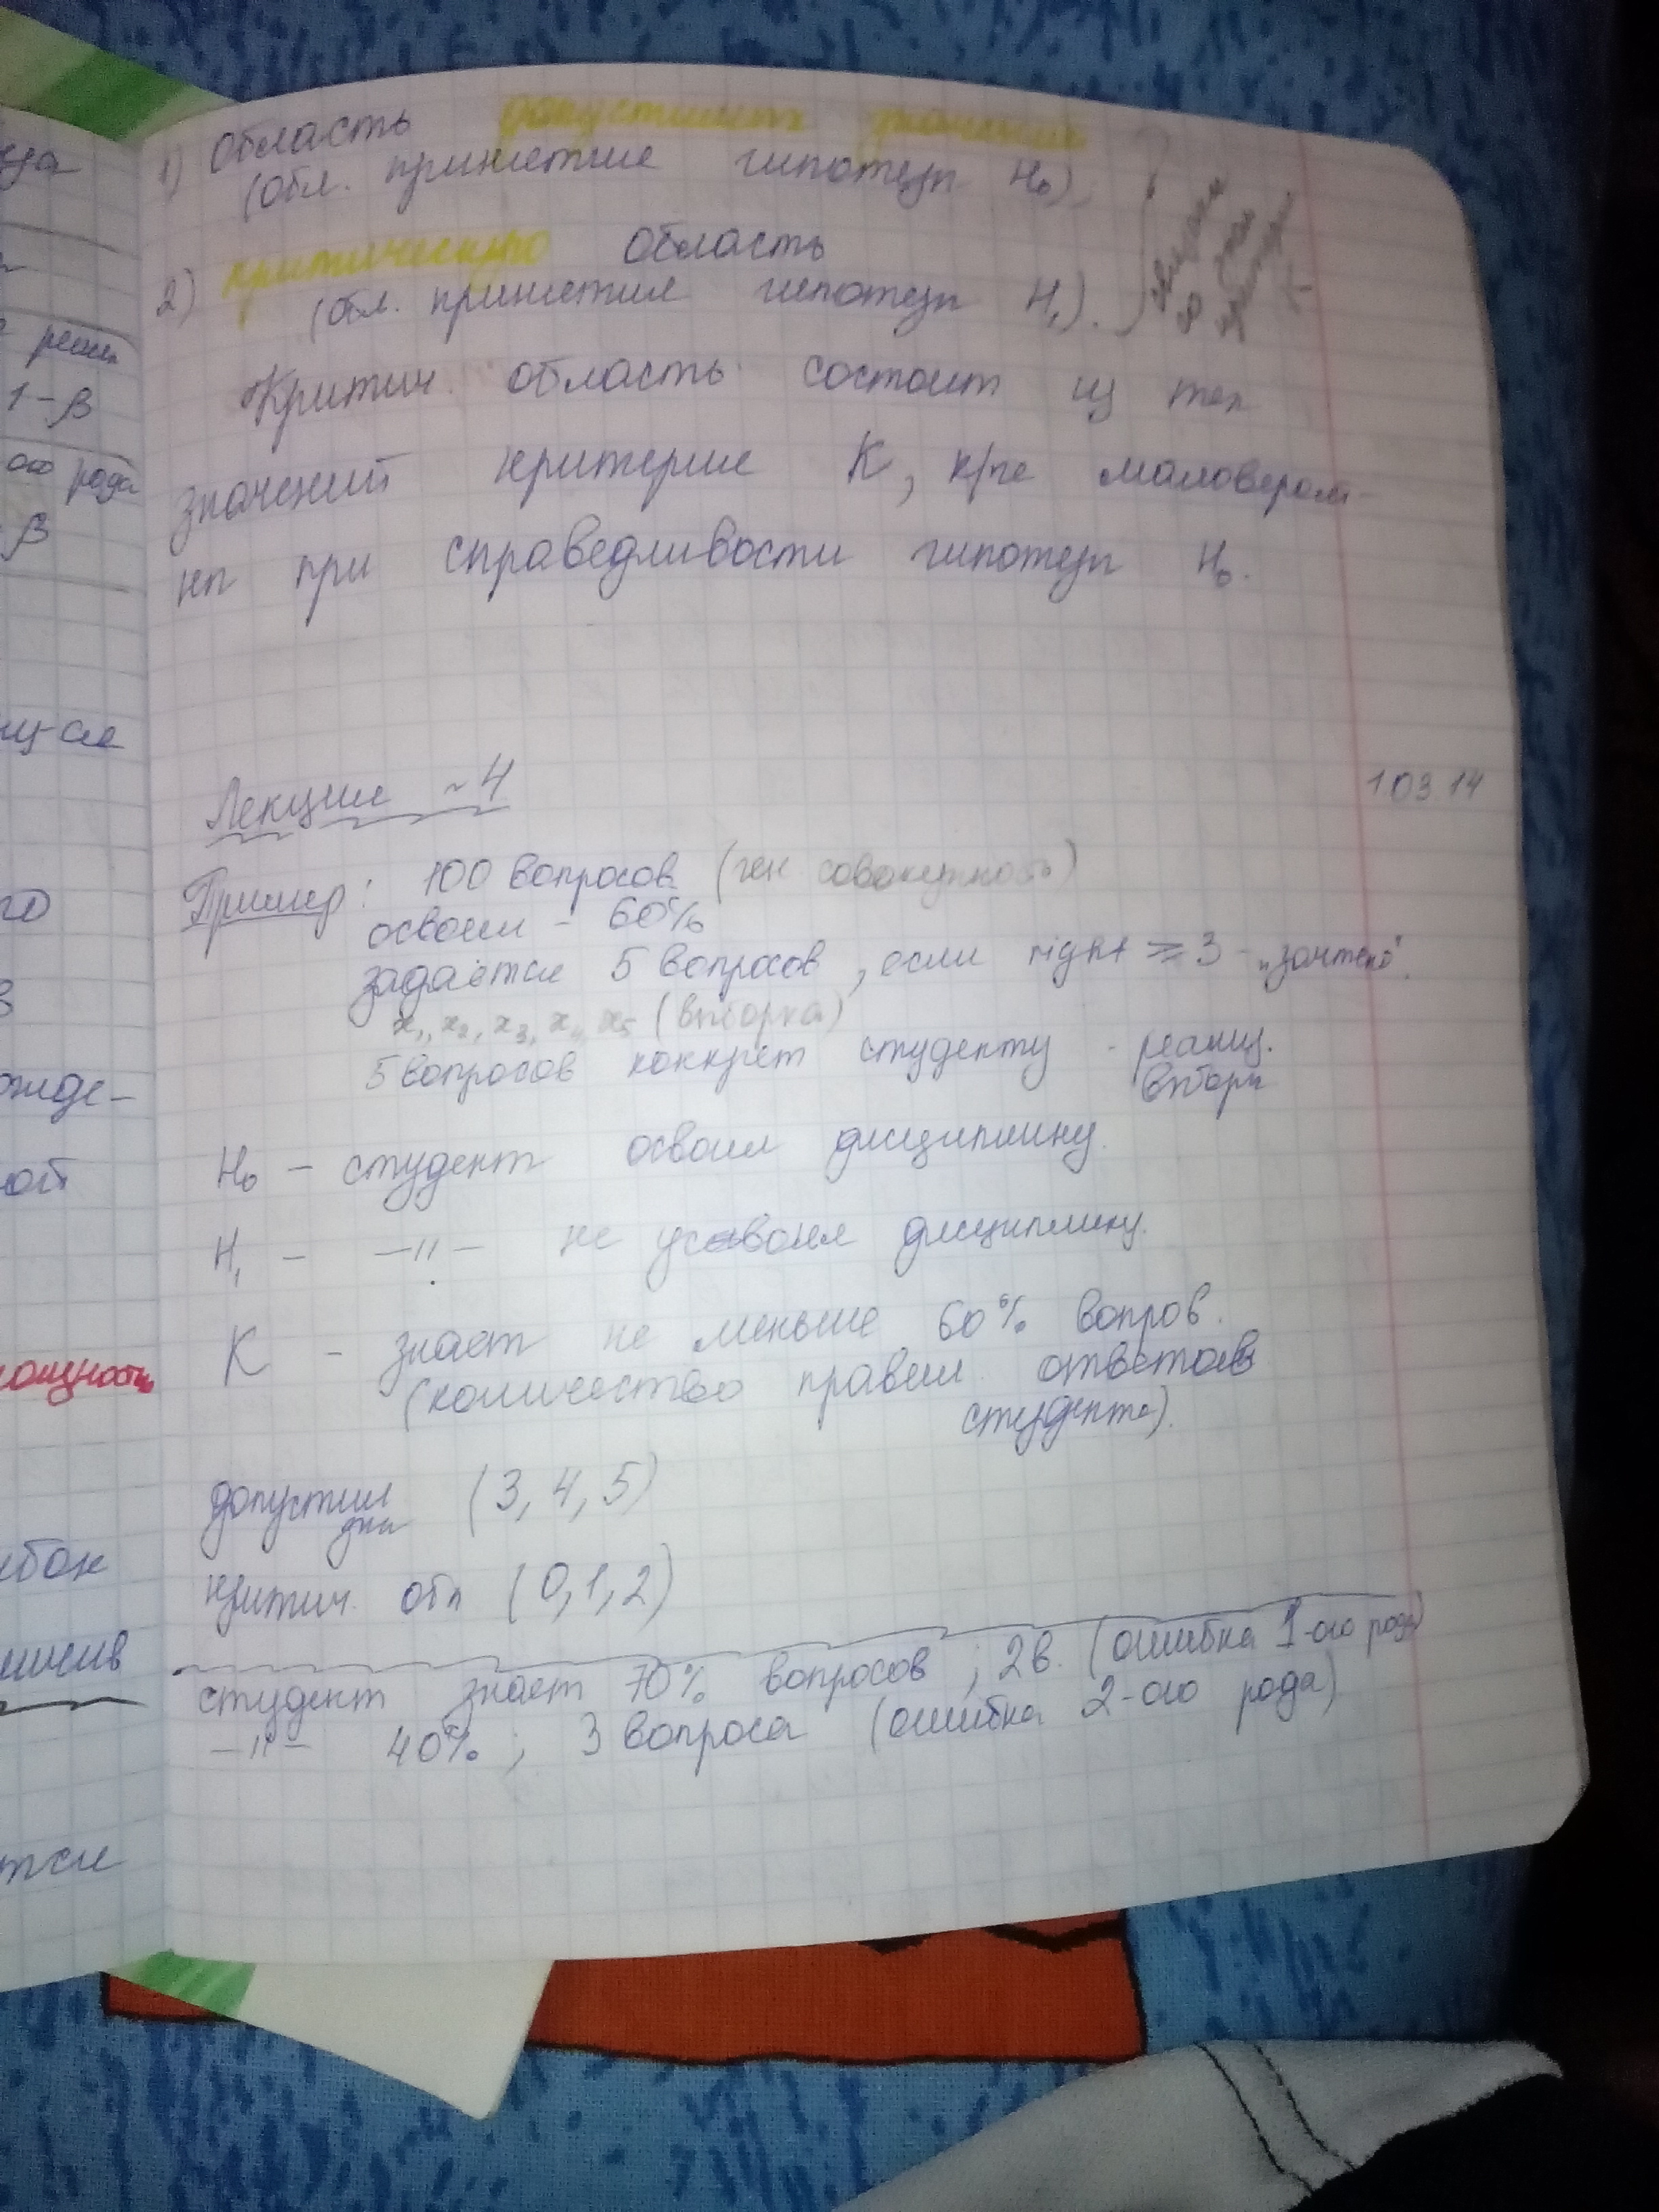 уда
е решен
1-β
ого рода
β
нц-ся
го
в
ожде-
ной
мощность
ибок
тся
1) Область допустимых значений
(обл. принятия гипотезы H₀),
2) критическую область
(обл. принятия гипотезы H₁).
Критич. область состоит из тех
значений критерия К, к/рые маловероят-
ны при справедливости гипотезы H₀.
Лекция ~4
1 03 14
Пример: 100 вопросов (ген совокупность)
освоил - 60%
задаётся 5 вопросов, если right ⩾ 3 - "зачтено".
x₁, x₂, x₃, x₄, x₅ (выборка)
5 вопросов конкрет студенту - реализ.
выборки
H₀ - студент освоил дисциплину.
H₁ - -"- не усвоил дисциплину.
К - знает не меньше 60% вопров.
(количество правил. ответов
студента).
допустим (3, 4, 5)
знач
критич. обл (0, 1, 2)
студент знает 70% вопросов; 2 в. (ошибка 1-ого рода)
-"- 40%; 3 вопроса (ошибка 2-ого рода)